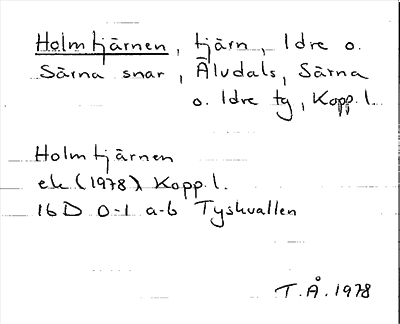 Holmtjärnen, tjärn, Idre o.
Särna snar, Äludals, Särna
o. Idre tg, Kopp. l.
Holmtjärnen
ek (1978) Kopp. l.
16 D 0-1 a-b Tyskvallen
T. Å. 1978